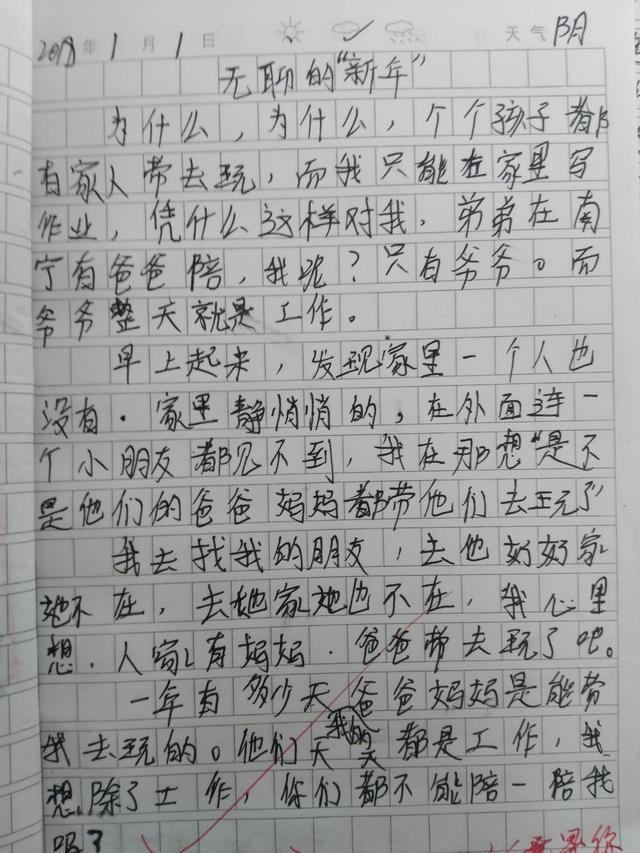 2018年1月1日 天气 阴
无聊的“新年”
为什么，为什么，个个孩子都
有家人带去玩，而我只能在家里写
作业，凭什么这样对我．弟弟在南
宁有爸爸陪，我呢？只有爷爷。而
爷爷整天就是工作。
早上起来，发现家里一个人也
没有．家里静悄悄的，在外面连一
个小朋友都见不到，我在那想“是不
是他们的爸爸妈妈都带他们去玩了”
我去找我的朋友，去他奶奶家
她不在，去她家她也不在，我心里
想．人家有妈妈．爸爸带去玩了吧。
一年有多少天爸爸妈妈是能带
我去玩的。他们天我的天都是工作，我
想除了工作，你们都不能陪一陪我
吗？